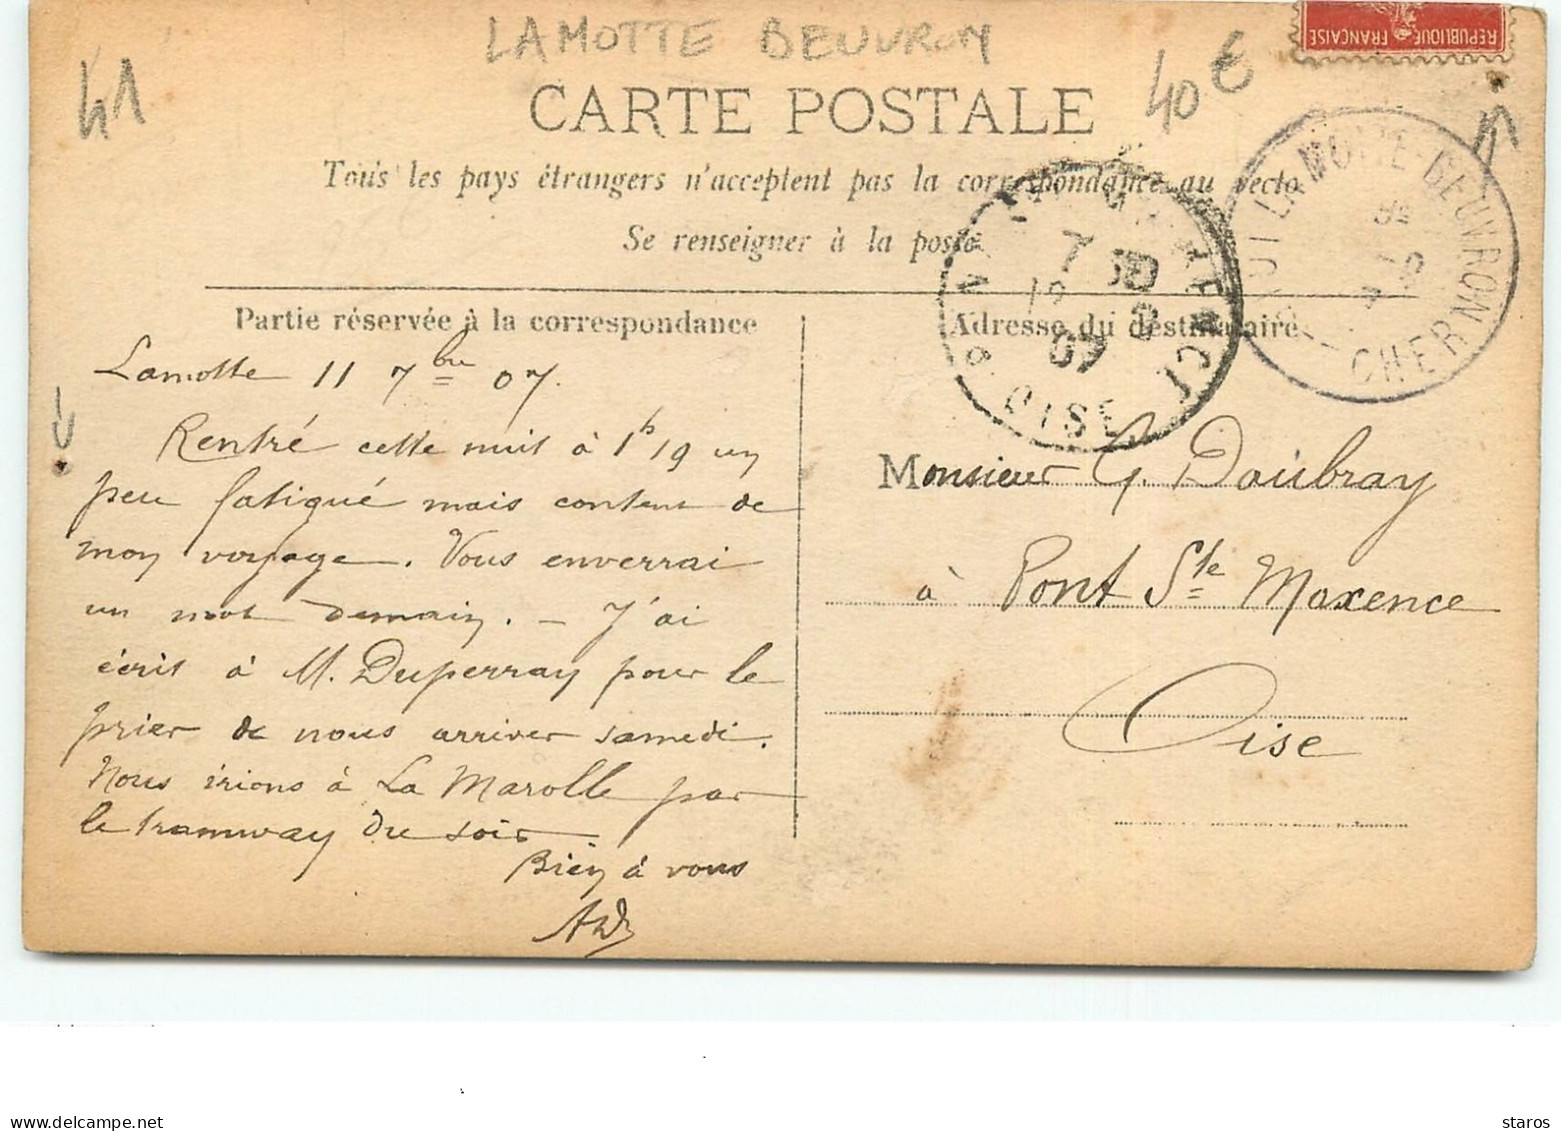 LAMOTTE BEUVRON
41
40 €
REPUBLIQUE FRANÇAISE
CARTE POSTALE
Tous les pays étrangers n'acceptent pas la correspondance au recto
Se renseigner à la poste
LAMOTTE-BEUVRON
CHER
7
12 - 9
07
OISE
Partie réservée à la correspondance
Adresse du destinataire
Lamotte 11 7bre 07.
Rentré cette nuit à 1h19 un
peu fatigué mais content de
mon voyage. Vous enverrai
un mot demain. — J'ai
écrit à M. Duperray pour le
prier de nous arriver samedi.
Nous irions à La Marolle par
le tramway du soir
Bien à vous
Monsieur G. Daubray
à Pont Ste Maxence
Oise
www.delcampe.net
staros